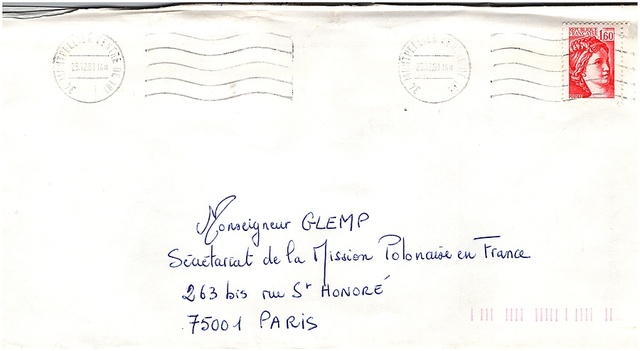 34 MONTPELLIER
1.60
Monseigneur GLEMP
Sécrétariat de la Mission Polonaise en France
263 bis rue St HONORÉ
75001 PARIS